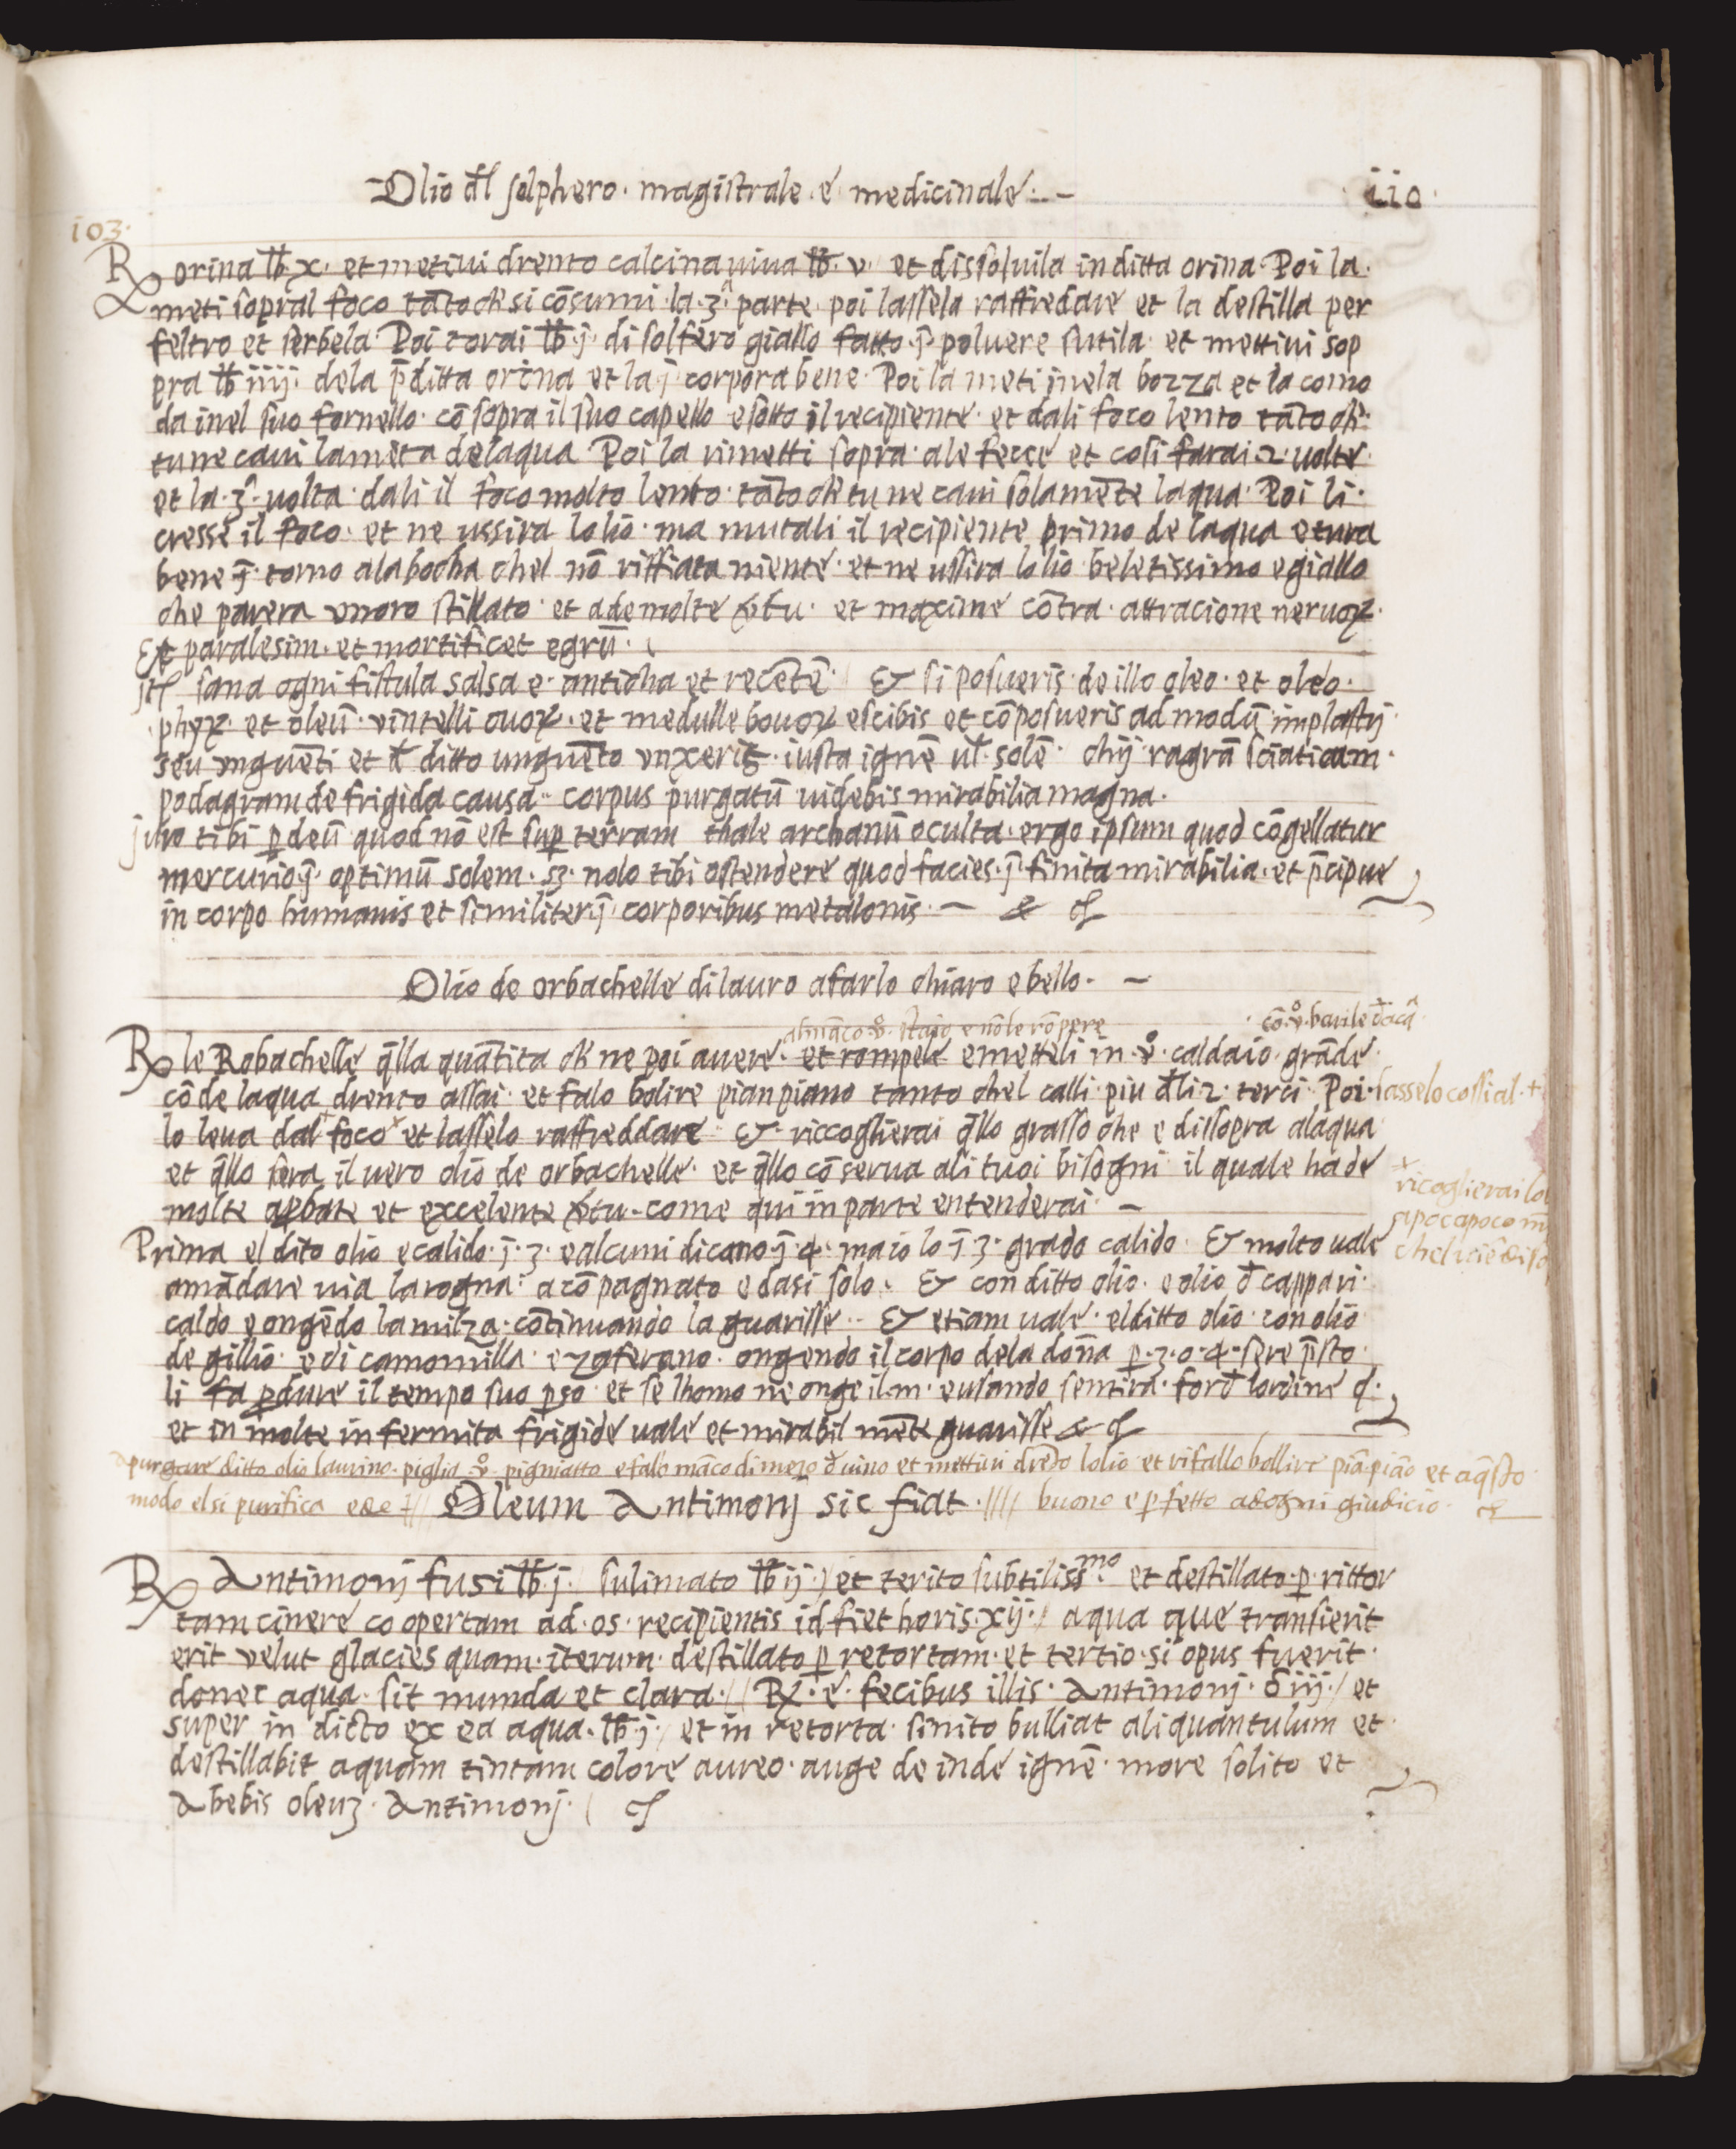 Olio dl solphero · magistrale · e · medicinale ·
110
103 ·
℞ orina lb · x · et metivi drento calcina viva lb · v · et dissolvila in ditta orina · Poi la ·
meti sopral foco tāto ch si cōsumi · la · 3ª · parte · poi lassela raffredare et la destilla per
feltro et serbela · Poi torai lb · j · di solfero giallo fatto · ī · polvere sutila · et mettivi sop
pra lb iiij · dela p̄ditta orina et la ī · corpora bene · Poi la meti inela bozza et la como
da inel suo fornello · cō sopra il suo capello e sotto il recipiente · et dali foco lento tāto ch ·
tu ne cavi lameta delaqua Poi la rimetti sopra · ale fecce et cosi farai · 2 · volte ·
et la · 3ª · volta · dali il foco molto lento · tāto ch tu ne cavi solamēte laqua · Poi li ·
cresse il foco · et ne ussira lolio · ma mutali il recipiente primo de laqua e tura
bene ī · torno ala bocha chel nō riffiata niente · et ne ussira lolio beletissimo e giallo
che parera unoro stillato · et a de molte v̄tu · et maxime cōtra · attracione nervoꝝ ·
Et paralesim · et mortificet egrū ·
Itē sana ogni fistula salsa e · anticha et recētē · Et si posueris · de illo oleo · et oleo ·
phyꝝ · et oleū · vintelli ovoꝝ · et medulle bovoꝝ escibis et cōposueris ad modū implastrj
seu unguēti et d ditto unguēto unxeris · iusta ignē ul · solē · chij ragrā sciaticam ·
podagram de frigida causa · corpus purgatū videbis mirabilia magna ·
juro tibi p deū quod nō est sup terram thale archanū oculta · ergo ipsum quod cōgellatur
mercurio ī · optimū solem · sʒ · nolo tibi ostendere quod facies · ī · finita mirabilia · et p̄cipue
in corpo humanis et similiter ī · corporibus metalonis ·
Olio de orbachelle di lauro a farlo chiaro e bello ·
almāco · ů · staio e nōle rōpere
cō · ů · barile dacā
℞ le Robachelle q̄lla quātita ch ne poi avere · et rompele e metteli in · ů · caldaio grāde ·
cō de laqua drento assai · et falo bolire pian piano tanto chel calli · piu dli · 2 · terci · Poi · lasselo cossi al ·
lo leva dal foco et lasselo raffreddare · Et · riccoglierai q̄llo grasso che e dissopra alaqua
et q̄llo sera il vero olio de orbachelle · et q̄llo cōserva ali tuoi bisogni il quale ha de
ricoglierai lo
molte apbate et excelente v̄tu · come qui in parte entenderai ·
apoc apoco
Prima el dito olio e calido · ī · 3 · e alcuni dicano ī · 4 · ma io lo ī 3 · grado calido · Et molto vale
amādare via la rogna · acōpagnato e da si solo · Et con ditto olio · e olio d cappari ·
caldo e ongēdo la milza · cōtinuando la guarisse · Et etiam vale · el ditto olio con olio
de gillio · e di camomilla · e zaferano · ongendo il corpo dela dōna p · 3 · o · 4 · sere p̄sto ·
li fa pdure il tempo suo pso · et se lhomo ne onge il · m · e usando sentira · ford lordine
et in molte infermita frigide vale et mirabil mēte guarisse
a purgare ditto olio laurino · piglia · ů · pigniatto e falo māco di mezo d vino et mettivi drēto lolio et rifallo bollire piā piāo et aq̄sto
modo el si purifica
Oleum Antimonj sic fiat ·
buono e pfetto adogni giudicio ·
℞ Antimonj fusi lb · j · sulimato lb ij · et terito subtilissᵐᵒ · et destillato p rittor
tam cinere coopertam ad · os · recipientis id fiet horis · xij · aqua que transierit
erit velut glacies quam · iterum · destillato p retortam · et tertio · si opus fuerit ·
donec aqua · sit munda et clara · ℞ · e · fecibus illis · Antimonj · ℥ iij · et
super in dicto ex ea aqua · lb · j · et in retorta · sinito bulliat aliquantulum et ·
destillabit aquam tintam colore aureo · auge de inde ignē · more solito et
Abebis oleuʒ · Antimonj ·